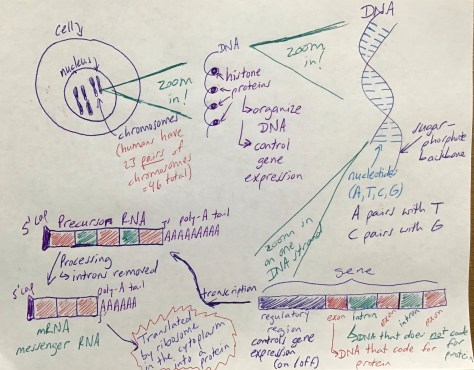 cell
nucleus
chromosomes
(humans have
23 pairs of
chromosomes
=46 total)
zoom
in!
DNA
histone
proteins
↳ organize
DNA
↳ control
gene
expression
zoom
in!
DNA
sugar-
phosphate
backbone
nucleotides
(A,T,C,G)
A pairs with T
C pairs with G
zoom in
on one
DNA strand
gene
regulatory
region
controls gene
expression
(on/off)
exon
intron
exon
intron
exon
↳ DNA that does not code for
protein
↳ DNA that code for
protein
transcription
5' cap
Precursor RNA
poly-A tail
AAAAAAAAA
Processing
↳ introns removed
5' cap
poly-A tail
AAAAAAA
mRNA
messenger RNA
Translated
by ribosome
in the cytoplasm
into a
protein